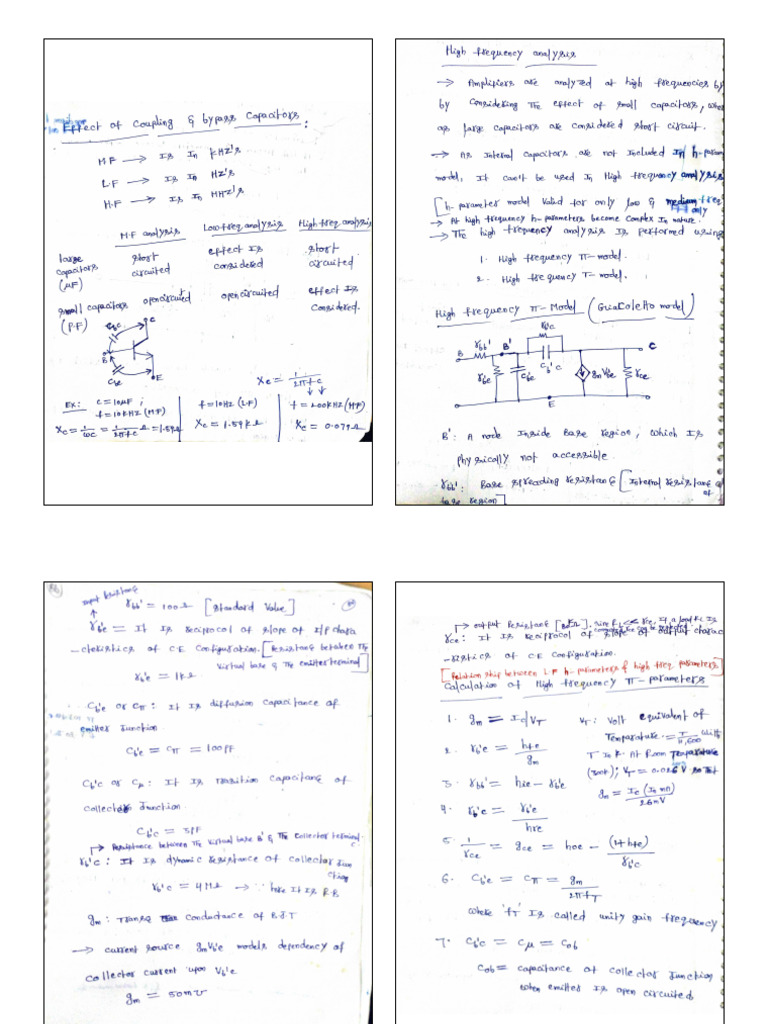 Effect of Coupling & bypass Capacitors :
M.F → Is In KHZ's
L.F → Is In HZ's
H.F → Is In MHZ's
M.F analysis Low freq analysis High freq. analysis
large capacitors (µF) short circuited effect Is considered short circuited
small capacitors (P.F) open circuited open circuited effect Is considered.
Cb'c C
B
Cb'e E
Xc = 1/2πfc
Ex: C = 10µF; f = 10KHZ (M.F) f = 10HZ (L.F) f = 200KHZ (H.F)
Xc = 1/ωc = 1/2πfc Ω = 1.59Ω Xc = 1.59KΩ Xc = 0.079Ω
High frequency analysis
→ Amplifiers are analyzed at high frequencies by
by Considering The effect of small capacitors,
as large capacitors are considered short circuit.
→ As Internal capacitors are not Included In h-param
model, It can't be used In High frequency analysis
[h-parameter model Valid for only low & medium freq only
→ At high frequency h-parameters become complex In nature.
→ The high frequency analysis Is performed using
1. High frequency π-model.
2. High frequency T-model.
High frequency π-Model (Giacoletto model)
rb'c
B rbb' B' Cb'c C
rb'e Cb'e gmVb'e rce
E
B' : A node Inside Base region, which Is
physically not accessible.
rbb' : Base spreading resistance [Internal resistance of
base region]
Input Resistance
rbb' = 100Ω [Standard Value]
rb'e = It Is reciprocal of slope of I/P chara
-cteristics of C.E Configuration. [Resistance between The
Virtual base & The emitter terminal]
rb'e = 1KΩ
Cb'e or Cπ : It Is diffusion Capacitance of
emitter Junction.
Cb'e = Cπ = 100PF
Cb'c or Cµ : It Is transition Capacitance of
Collector Junction.
Cb'c = 3PF
Resistance between The Virtual base B' & The Collector terminal c.
rb'c : It Is dynamic resistance of collector Jun
ction
rb'c = 4MΩ → ∵ here It Is R.B
gm : Trans Conductance of BJT
→ current source gmVb'e models dependency of
collector current upon Vb'e
gm = 50mv
output Resistance
rce : It Is reciprocal of slope of output charac
-teristics of C.E Configuration.
[Relation ship between L.F h-parameters & high freq. parameters
Calculation of High frequency π-parameters
1. gm = Ic/VT
VT : Volt equivalent of
Temparature = T/11,600 Volts
2. rb'e = hfe/gm
T In K. At Room Temparature
(300K); VT = 0.026 V
3. rbb' = hie - rb'e
gm = Ic (In mA)/26mV
4. rb'c = rb'e/hre
5. 1/rce = gce = hoe - (1+hfe)/rb'c
6. Cb'e = Cπ = gm/2πfT
where 'fT' Is called unity gain frequency
7. Cb'c = Cµ = Cob
Cob = capacitance at collector Junction
when emitter Is open circuited